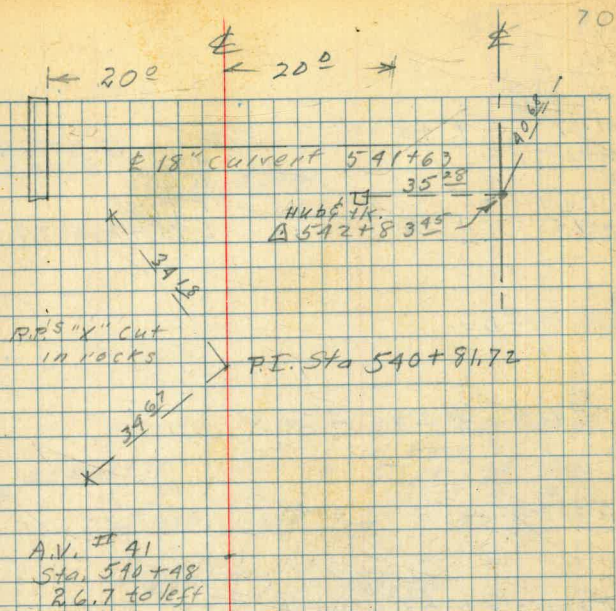 70
℄ ℄
20° 20°
40 68
℄ 18" Culvert 541+63
35 28
Hub & tk.
△ 542+83 45
34 18
R.P.'s "X" cut
in rocks
P.I. Sta 540+81.72
34 67
A.V. # 41
Sta. 540+48
26.7 to left